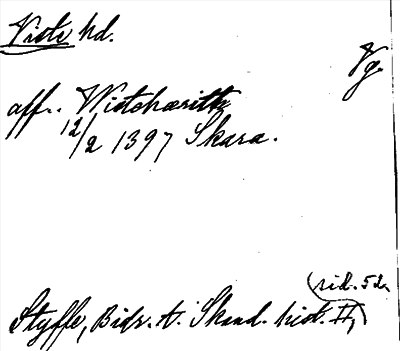 Viste hd.
Vg.
aff. Wistehæritt
12/2 1397 Skara.
(sid. 52.
Styffe, Bidr. t. Skand. hist. II,